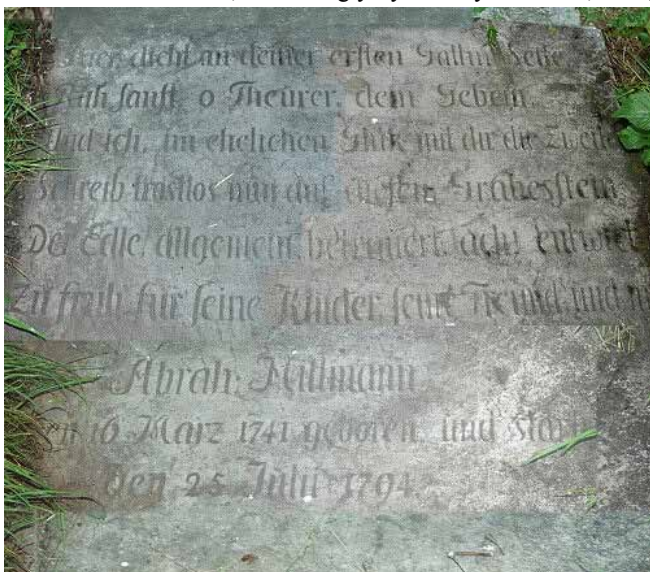 Hier, dicht an deiner ersten Gattin Seite
Ruh sanft, o Theurer, dein Gebein,
Und ich, im ehelichen Glük mit dir die Zweite
Schreib trostlos nun auf diesen Grabesstein
Der Edle, allgemein betrauert,
Zu früh für seine Kinder, seine Freund, und
Abrah.
den 16 März 1741 geboren, und starb
den 25 Julii 1794.